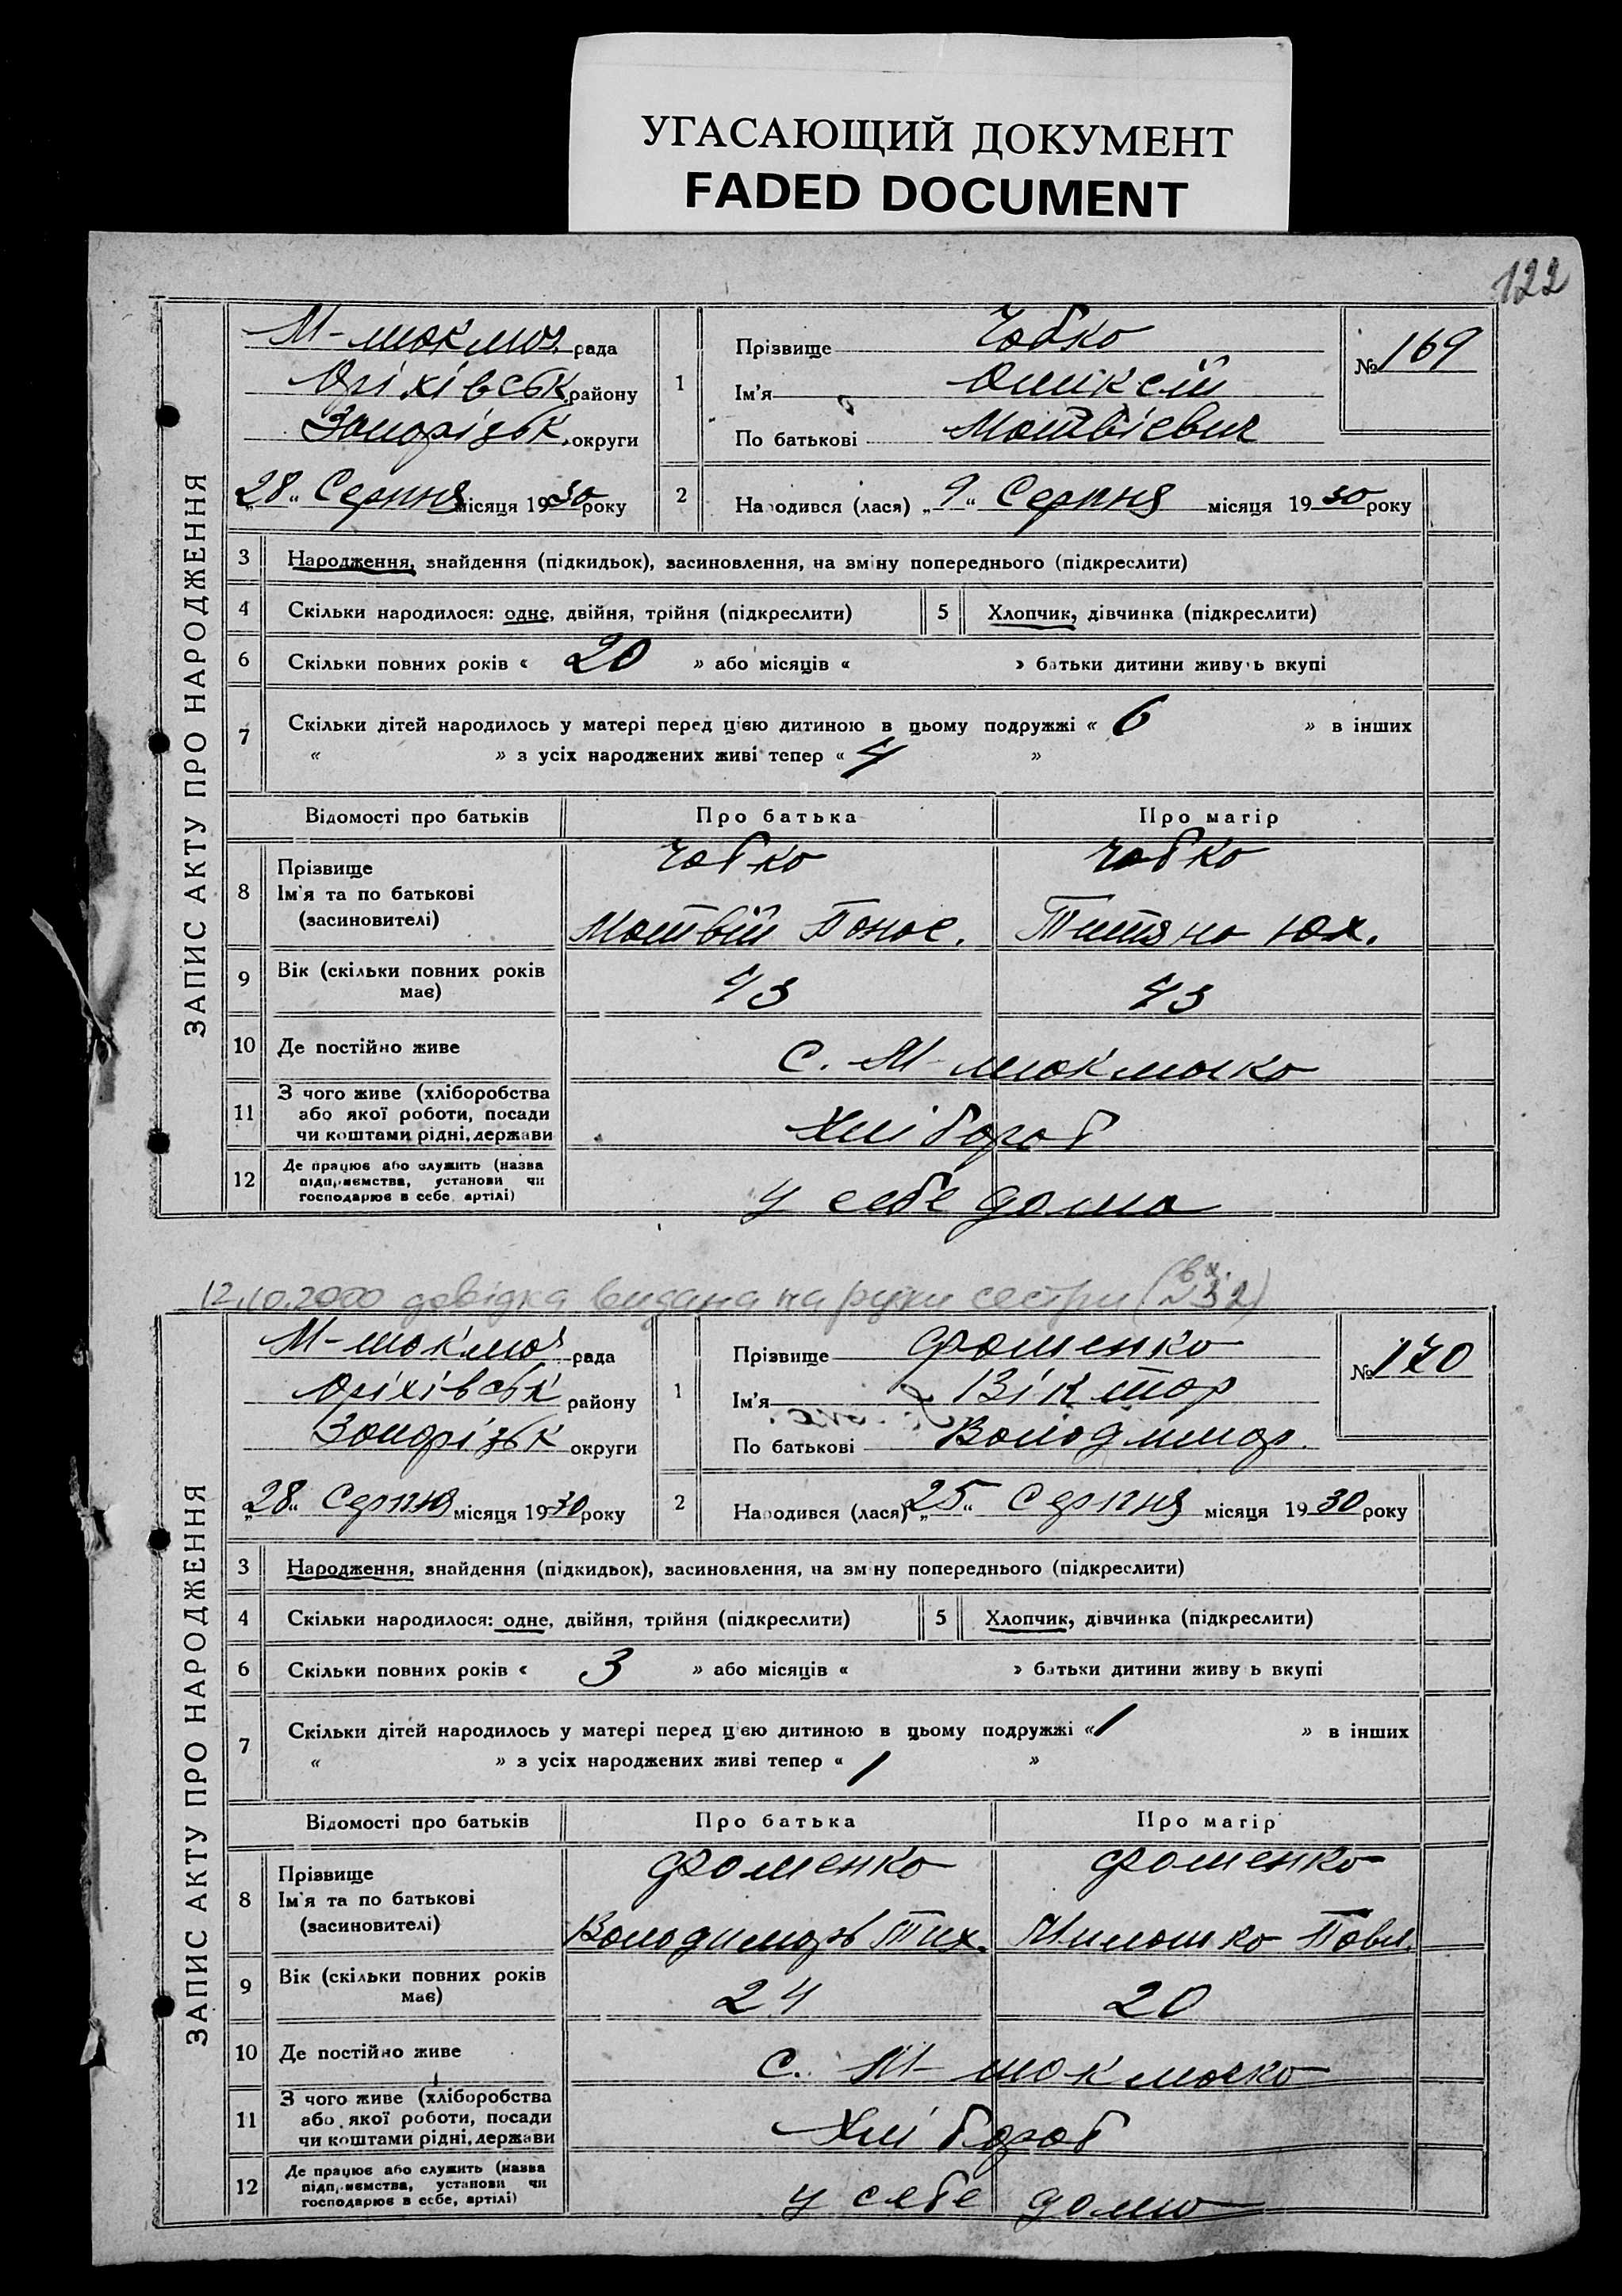 УГАСАЮЩИЙ ДОКУМЕНТ
FADED DOCUMENT
122
ЗАПИС АКТУ ПРО НАРОДЖЕННЯ
М-токмач. рада
Оріхівськ. району
Запорізьк. округи
„28“ Серпня місяця 1930 року
1
Прізвище Чабко
Ім'я Оликсій
По батькові Матвієвич
№ 169
2 Народився (лася) „9“ Серпня місяця 1930 року
3 Народження, знайдення (підкидьок), засиновлення, на зміну попереднього (підкреслити)
4 Скільки народилося: одне, двійня, трійня (підкреслити) 5 Хлопчик, дівчинка (підкреслити)
6 Скільки повних років « 20 » або місяців « » батьки дитини живуть вкупі
7 Скільки дітей народилось у матері перед цією дитиною в цьому подружжі « 6 » в інших
« » з усіх народжених живі тепер « 4 »
Відомості про батьків Про батька Про матір
8 Прізвище Чабко Чабко
Ім'я та по батькові
(засиновителі) Матвій Панас. Титяна Юх.
9 Вік (скільки повних років має) 43 43
10 Де постійно живе с. М-токмачка
11 З чого живе (хліборобства
або якої роботи, посади
чи коштами рідні, держави Хлібороб
12 Де працює або служить (назва
підприємства, установи чи
господарює в себе, артілі) у себе дома
12.10.2000 довідка видана на руки сестри (вх. 32)
ЗАПИС АКТУ ПРО НАРОДЖЕННЯ
М-токмач рада
Оріхівськ району
Запорізьк округи
„28“ Серпня місяця 1930 року
1
Прізвище Фоменко
Ім'я Віктор
По батькові Володимир.
№ 170
2 Народився (лася) „25“ Серпня місяця 1930 року
3 Народження, знайдення (підкидьок), засиновлення, на зміну попереднього (підкреслити)
4 Скільки народилося: одне, двійня, трійня (підкреслити) 5 Хлопчик, дівчинка (підкреслити)
6 Скільки повних років « 3 » або місяців « » батьки дитини живуть вкупі
7 Скільки дітей народилось у матері перед цією дитиною в цьому подружжі « 1 » в інших
« » з усіх народжених живі тепер « 1 »
Відомості про батьків Про батька Про матір
8 Прізвище Фоменко Фоменко
Ім'я та по батькові
(засиновителі) Володимиръ Тих. Павл.
9 Вік (скільки повних років має) 24 20
10 Де постійно живе с. М-токмачка
11 З чого живе (хліборобства
або якої роботи, посади
чи коштами рідні, держави Хлібороб
12 Де працює або служить (назва
підприємства, установи чи
господарює в себе, артілі) у себе дома